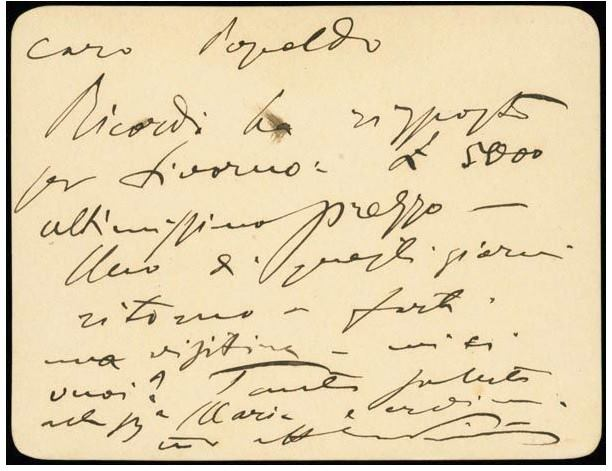 caro Popoldo
Ricordi ha risposto
per Livorno: £ 5000
ultimissimo prezzo —
Uno di questi giorni
ritorno a farti
una visitina — mi ci
vuoi? Tanti saluti
alla Maria e